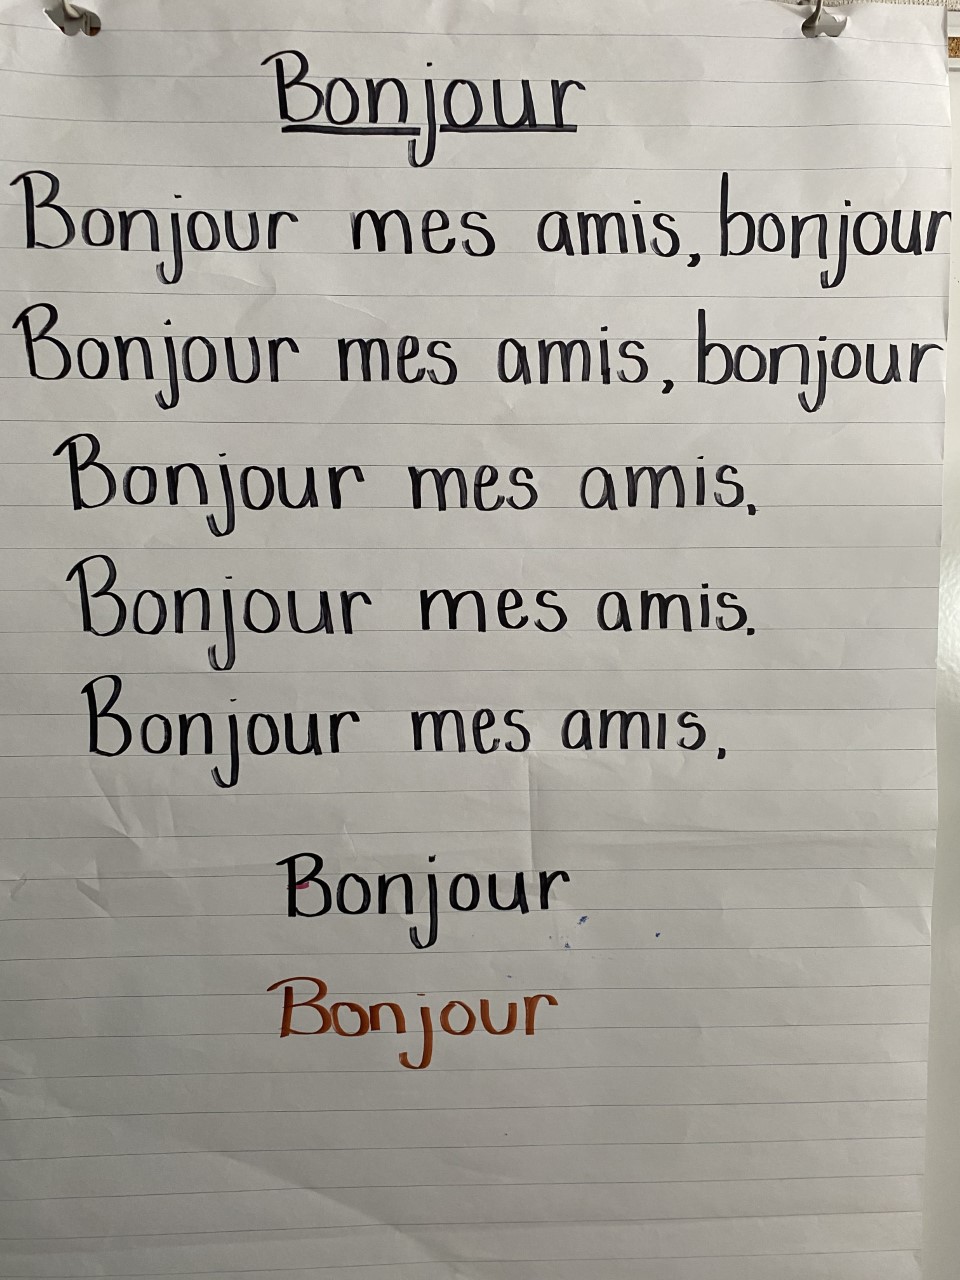 Bonjour
Bonjour mes amis, bonjour
Bonjour mes amis, bonjour
Bonjour mes amis,
Bonjour mes amis.
Bonjour mes amis,
Bonjour
Bonjour